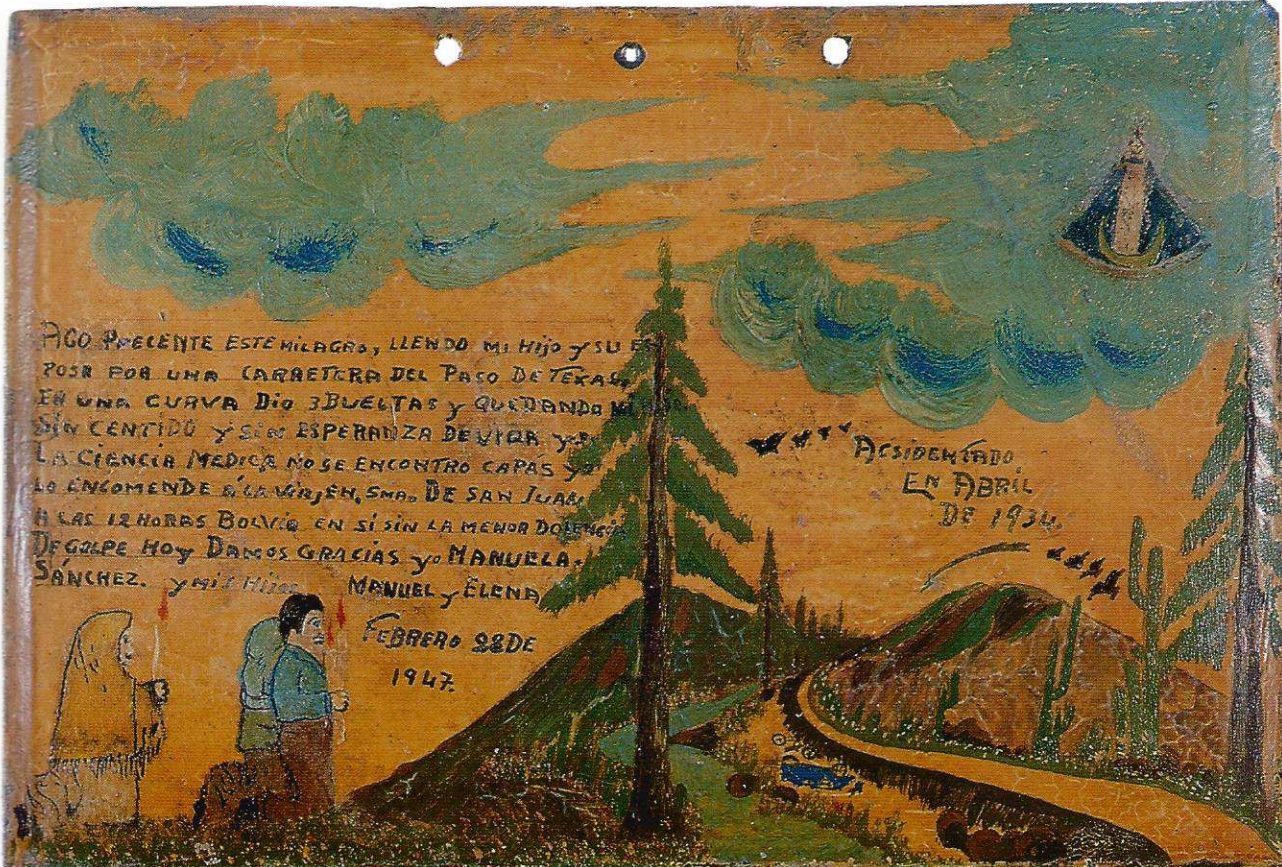 AGO PRECENTE ESTE MILAGRO, LLENDO MI HIJO y SU ES
POSA POR UNA CARRETERA DEL PASO DE TEXAS,
EN UNA CURVA DIO 3 BUELTAS y QUEDANDO MI
SIN CENTIDO y SIN ESPERANZA DE VIDA y
LA CIENCIA MEDICA NO SE ENCONTRO CAPÁS y
LO ENCOMENDE A LA VIRJEN, SMA. DE SAN JUAN
A LAS 12 HORAS BOLVIO EN SÍ SIN LA MENOR DOLENCIA
DE GOLPE HOY DAMOS GRACIAS yo MANUELA.
SÁNCHEZ. y MIS HIJOS MANUEL y ELENA
FEBRERO 28 DE
1947.
ACSIDENTADO
EN ABRIL
DE 1934.